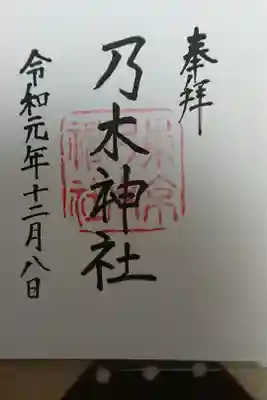 奉拝
乃木神社
令和元年十二月八日